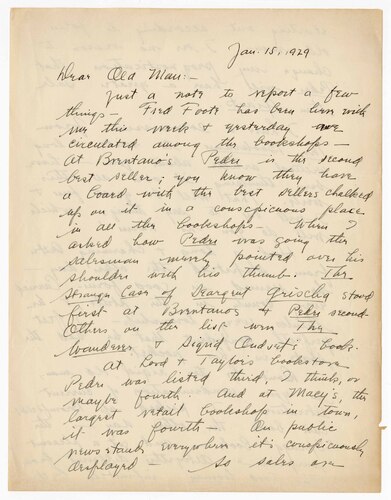 Jan. 15, 1929
Dear Old Man:-
Just a note to report a few
things - Fred Foote has been here with
me this week & yesterday we
circulated among the bookshops -
At Brentanos Pedro is the second
best seller; you know they have
a board with the best sellers chalked
up on it in a conspicuous place
in all the bookshops - When I
asked how Pedro was going the
salesman merely pointed over his
shoulder with his thumb. The
Strange Case of Seargent Grischa stood
first at Brentanos & Pedro second.
Others on the list were The
Wanderer & Sigrid Undset's book.
At Lord & Taylor's bookstore
Pedro was listed third, I think, or
maybe fourth. And at Macy's, the
largest retail bookshop in town,
it was fourth - On public
newsstands everywhere it's conspicuously
displayed - As sales are